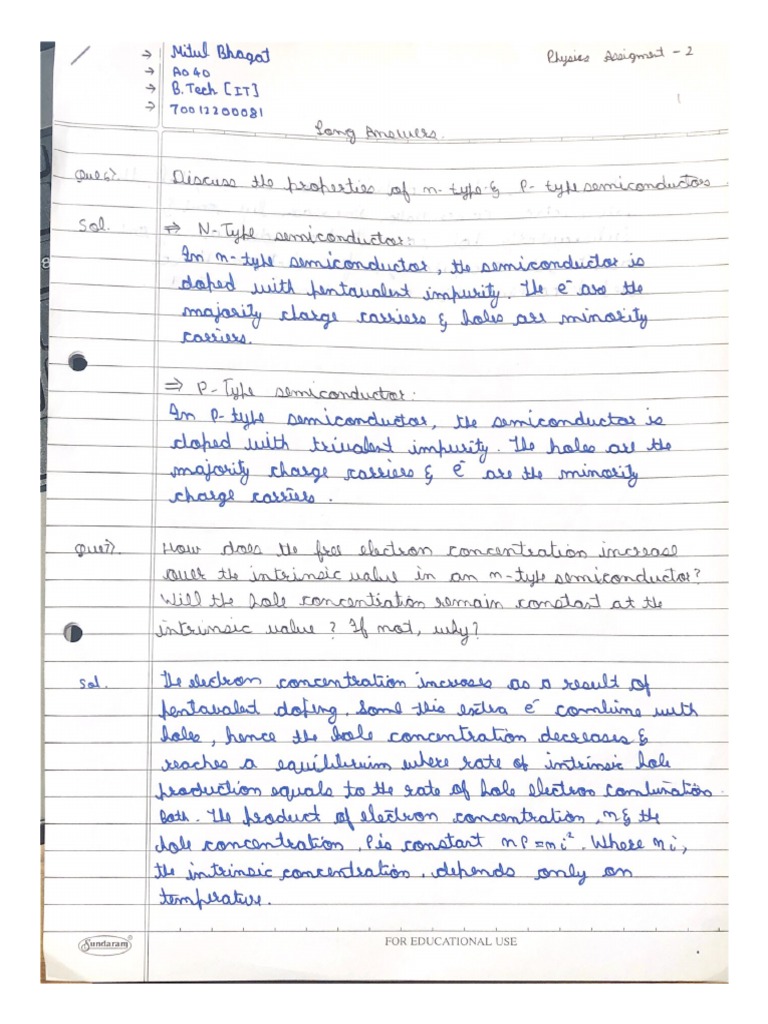 → Mitul Bhagat
Physics Assigment - 2
→ A040
→ B.Tech [IT]
→ 70012200081
1
Long Answers.
Que6). Discuss the properties of n-type & P-type semiconductors
Sol. ⇒ N-Type semiconductor:
In n-type semiconductor, the semiconductor is
doped with pentavalent impurity. The e⁻ are the
majority charge carriers & holes are minority
carriers.
⇒ P-Type semiconductor:
In P-type semiconductor, the semiconductor is
doped with trivalent impurity. The holes are the
majority charge carriers & e⁻ are the minority
charge carriers.
Que7). How does the free electron concentration increase
over the intrinsic value in an n-type semiconductor?
Will the hole concentration remain constant at the
intrinsic value? If not, why?
Sol. The electron concentration increases as a result of
pentavalent doping. Some this extra e⁻ combine with
holes, hence the hole concentration decreases &
reaches a equilibrium where rate of intrinsic hole
production equals to the rate of hole electron combination
Both. The product of electron concentration, n & the
hole concentration, P is constant nP = ni². Where ni,
the intrinsic concentration, depends only on
temperature.
Sundaram®
FOR EDUCATIONAL USE